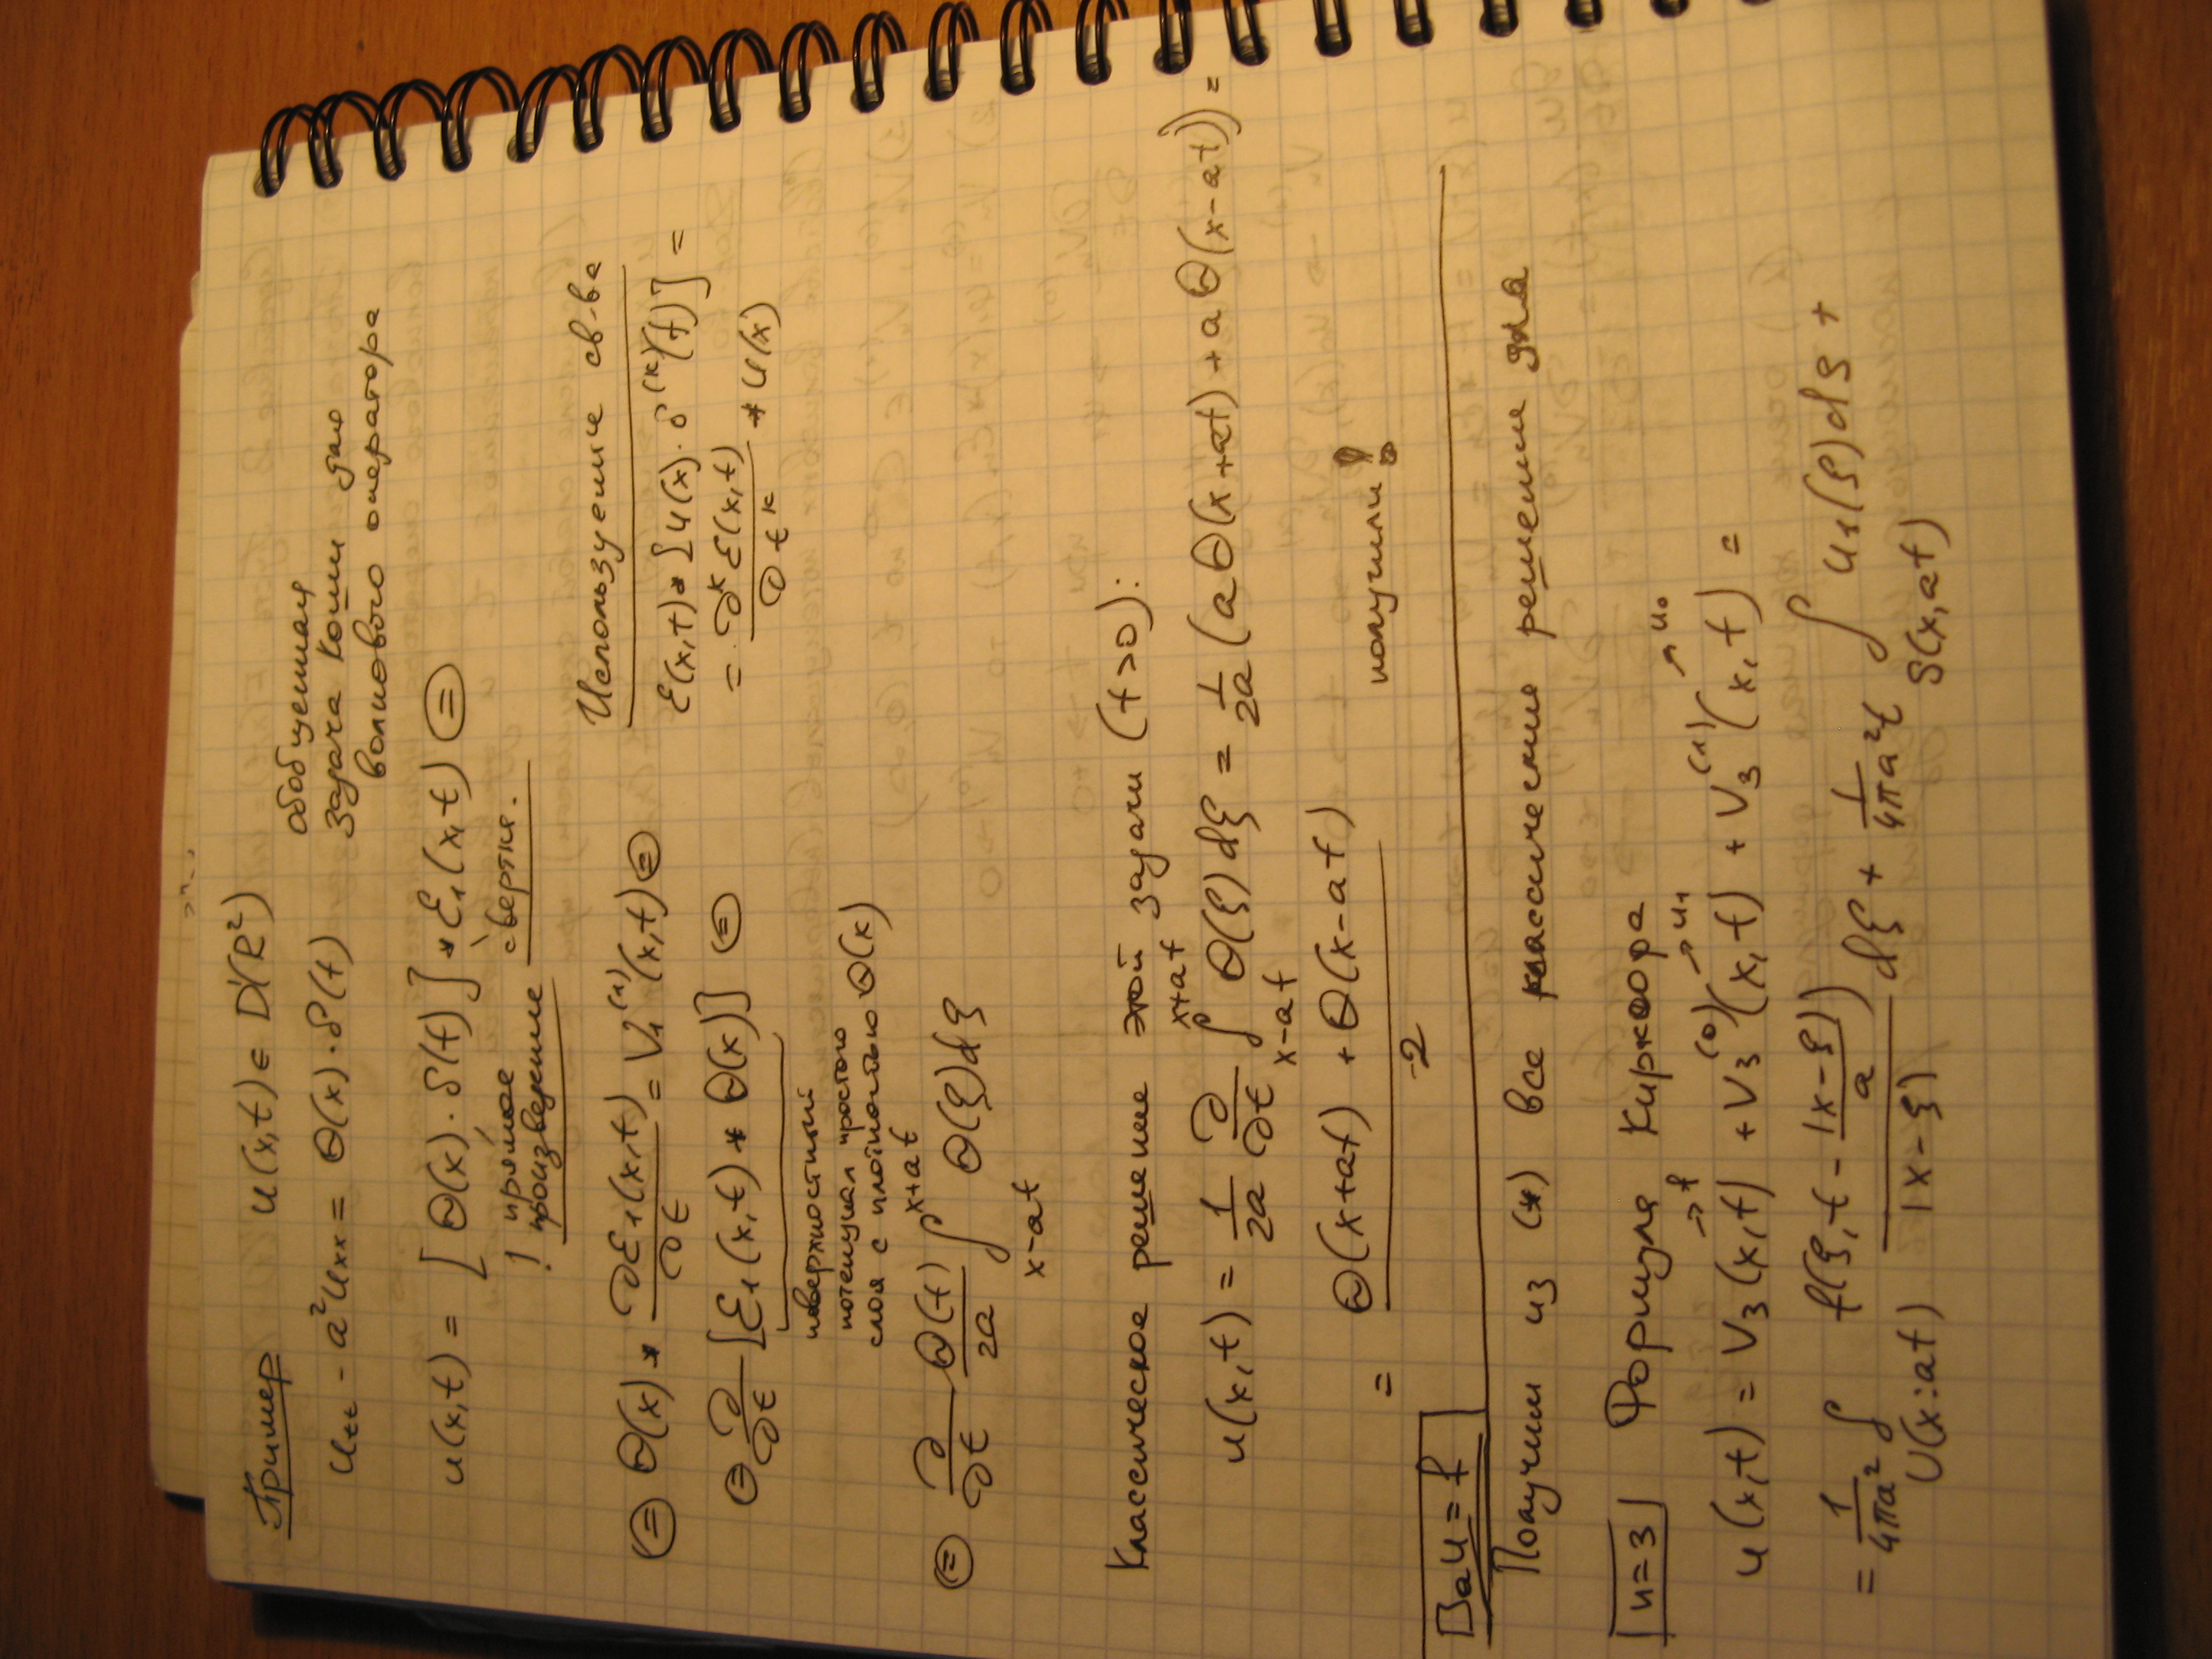 Пример u(x,t) ∈ D'(R²)
обобщенная
задача Коши для
волнового оператора
u_tt - a²u_xx = Θ(x)·δ(t)
u(x,t) = [Θ(x)·δ(t)] * ℰ₁(x,t) ⊜
! прямое произведение
свертка.
⊜ Θ(x) * ∂ℰ₁(x,t)/∂t = V₁⁽¹⁾(x,t) ⊜
Использует св-ва
ℰ(x,t) * [u(x)·δ⁽ᵏ⁾(t)] =
= ∂ᵏℰ(x,t)/∂tᵏ * u(x)
⊜ ∂/∂t [ℰ₁(x,t) * Θ(x)] ⊜
поверхностный
потенциал простого
слоя с плотностью Θ(x)
⊜ ∂/∂t Θ(t)/2a ∫_{x-at}^{x+at} Θ(ξ)dξ
Классическое решение этой задачи (t>0):
u(x,t) = 1/2a ∂/∂t ∫_{x-at}^{x+at} Θ(ξ)dξ = 1/2a (aΘ(x+at) + aΘ(x-at)) =
= (Θ(x+at) + Θ(x-at))/2 получили!
□ₐu = f
Получим из (*) все классические решения для
n=3 Формула Кирхгофа
u(x,t) = V₃(x,t) →f + V₃⁽⁰⁾(x,t) →u₁ + V₃⁽¹⁾(x,t) →u₀ =
= 1/4πa² ∫_{U(x;at)} f(ξ,t - |x-ξ|/a)/|x-ξ| dξ + 1/4πa²t ∫_{S(x,at)} u₁(ξ)dS +